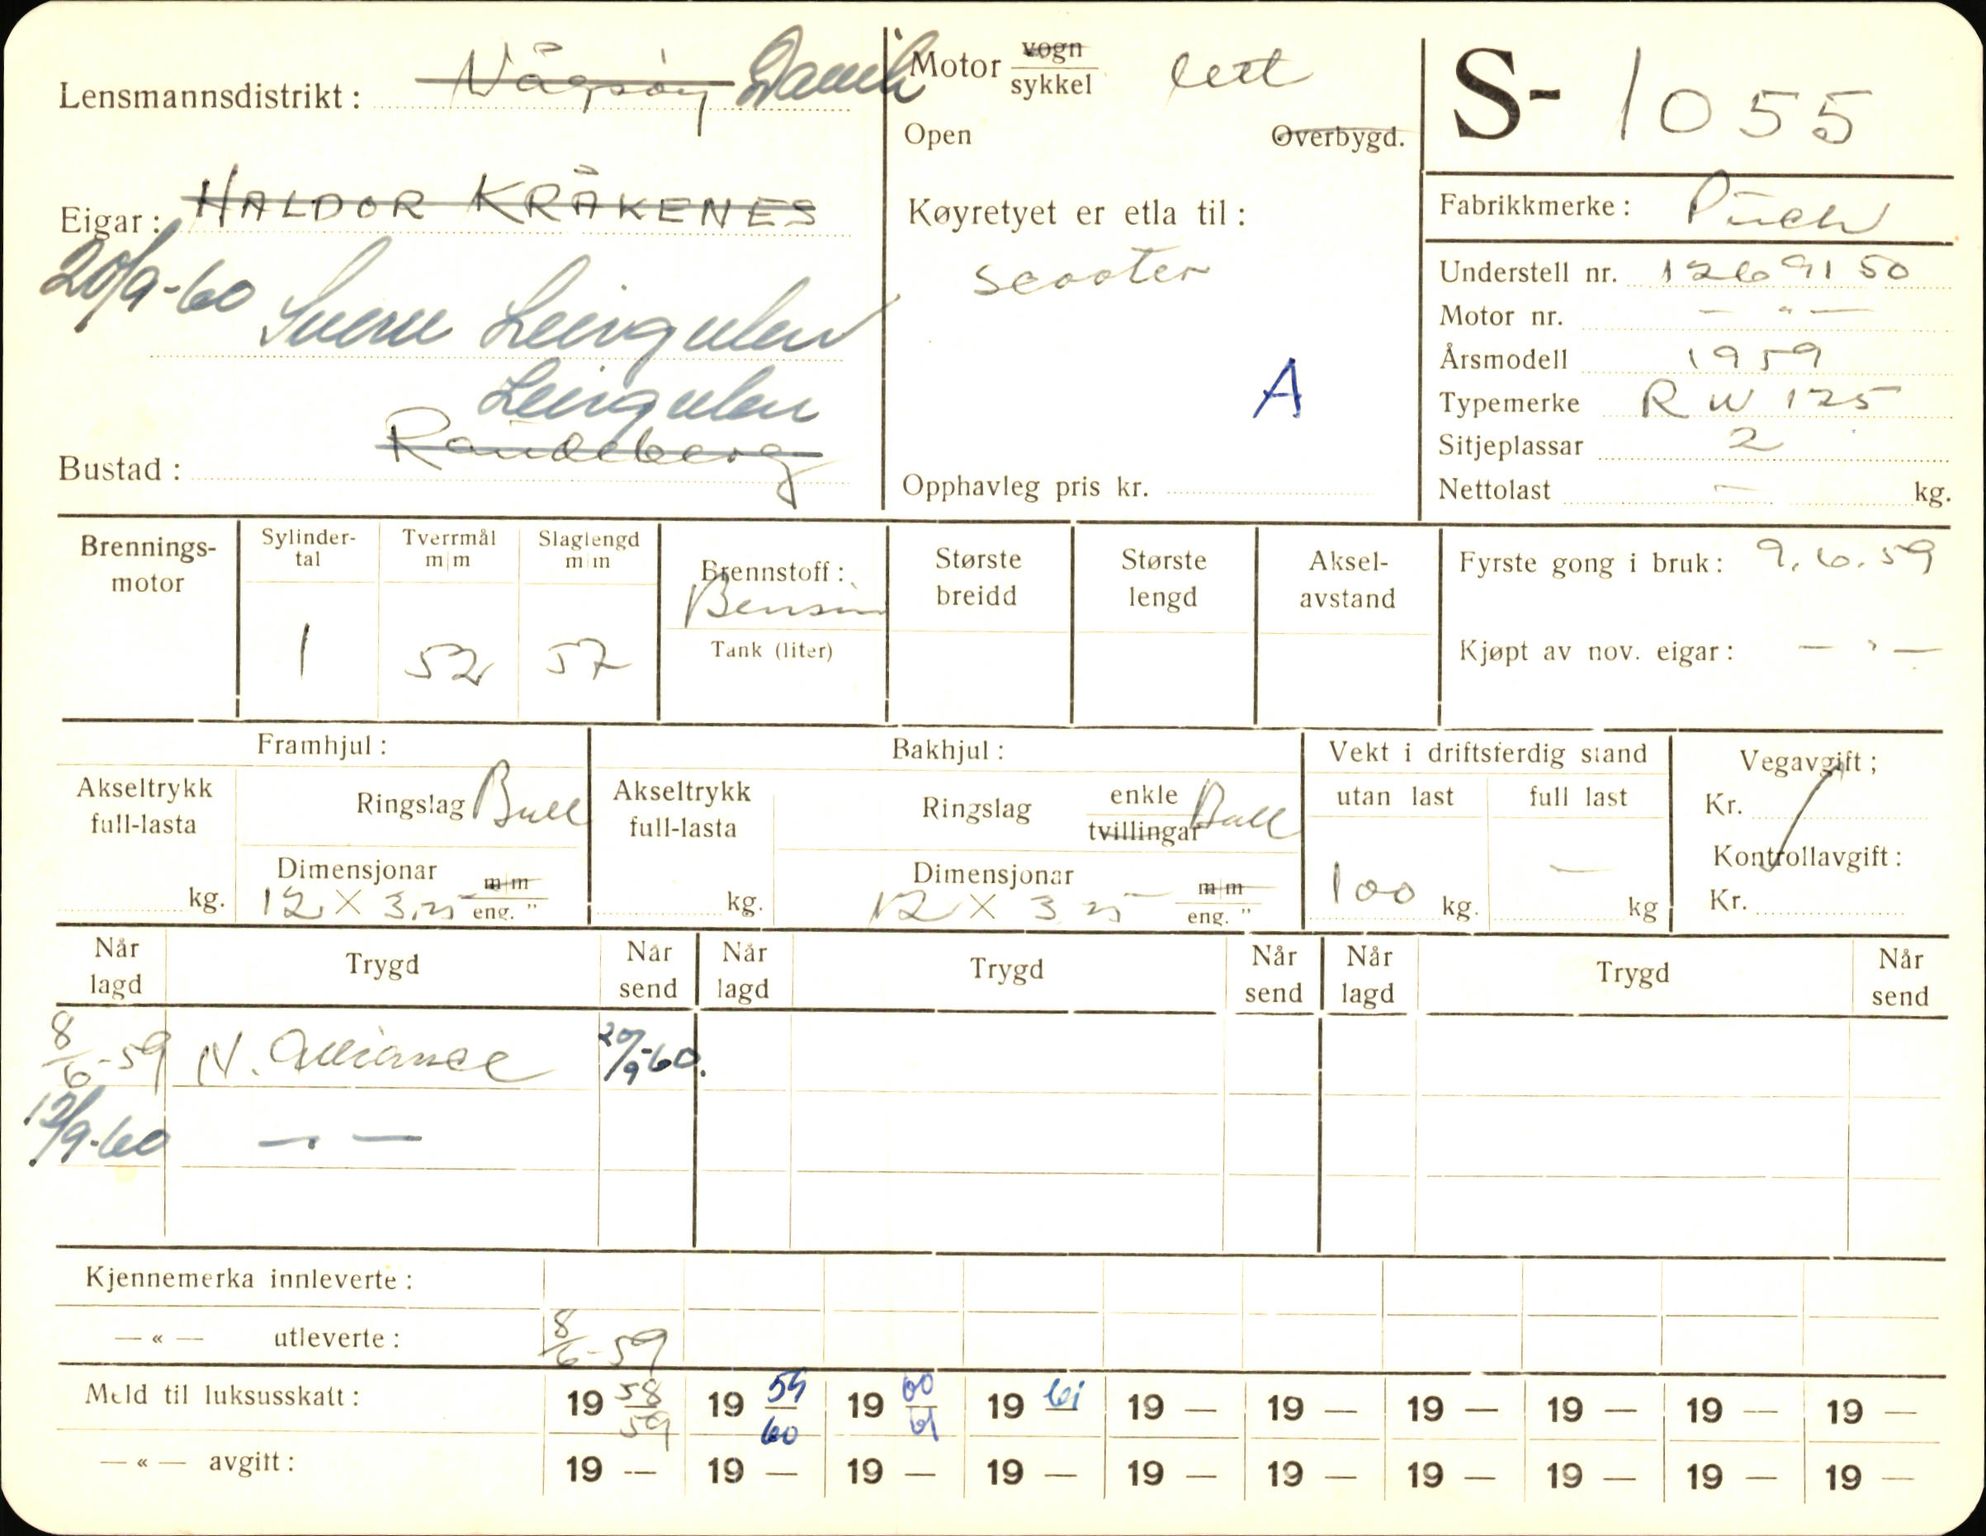 Lensmannsdistrikt: Vågsøy Davik
Eigar: HALDOR KRÅKENES
20/9-60 Sverre Leirgulen
Leirgulen
Bustad: Raudeberg
Motor vogn/sykkel lett
Open Overbygd.
Køyretyet er etla til:
scooter
A
Opphavleg pris kr.
S- 1055
Fabrikkmerke: Puch
Understell nr. 1269150
Motor nr. — " —
Årsmodell 1959
Typemerke RW 125
Sitjeplassar 2
Nettolast — kg.
Brennings-
motor
Sylinder-
tal
1
Tverrmål
m/m
52
Slaglengd
m/m
57
Brennstoff:
Bensin
Tank (liter)
Største
breidd
Største
lengd
Aksel-
avstand
Fyrste gong i bruk: 9.6.59
Kjøpt av nov. eigar: — " —
Framhjul:
Akseltrykk
full-lasta
kg.
Ringslag Bull
Dimensjonar
12 X 3,25 m/m
eng. "
Bakhjul:
Akseltrykk
full-lasta
kg.
Ringslag enkle
tvillingar Bull
Dimensjonar
12 X 3 25 — m/m
eng. "
Vekt i driftsferdig stand
utan last full last
100 kg. — kg
Vegavgift;
Kr.
Kontrollavgift:
Kr.
Når
lagd Trygd Når
send Når
lagd Trygd Når
send Når
lagd Trygd Når
send
8/6-59 N. Alliance 20/9-60.
12/9-60 — " —
Kjennemerka innleverte:
— « — utleverte: 8/6-59
Meld til luksusskatt: 19 58/59 19 59/60 19 60/61 19 61 19 — 19 — 19 — 19 — 19 — 19 —
— « — avgitt: 19 — 19 — 19 — 19 — 19 — 19 — 19 — 19 — 19 — 19 —